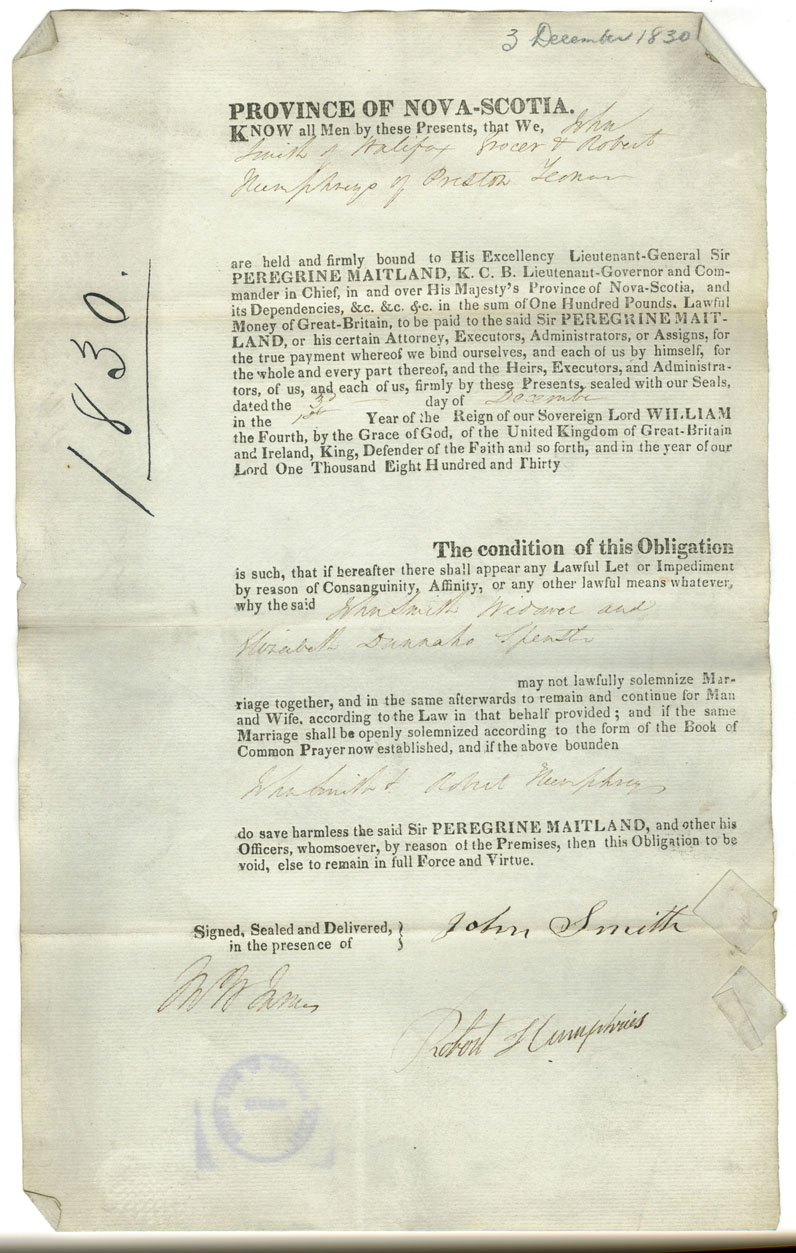 3 December 1830
PROVINCE OF NOVA-SCOTIA.
KNOW all Men by these Presents, that We, John
Smith of Halifax Grocer & Robert
Humphreys of Preston Yeoman
are held and firmly bound to His Excellency Lieutenant-General Sir
PEREGRINE MAITLAND, K. C. B. Lieutenant-Governor and Com-
mander in Chief, in and over His Majesty's Province of Nova-Scotia, and
its Dependencies, &c. &c. &c. in the sum of One Hundred Pounds, Lawful
Money of Great-Britain, to be paid to the said Sir PEREGRINE MAIT-
LAND, or his certain Attorney, Executors, Administrators, or Assigns, for
the true payment whereof we bind ourselves, and each of us by himself, for
the whole and every part thereof, and the Heirs, Executors, and Administra-
tors, of us, and each of us, firmly by these Presents, sealed with our Seals,
dated the 3d day of December
in the 1st Year of the Reign of our Sovereign Lord WILLIAM
the Fourth, by the Grace of God, of the United Kingdom of Great-Britain
and Ireland, King, Defender of the Faith and so forth, and in the year of our
Lord One Thousand Eight Hundred and Thirty
1830.
The condition of this Obligation
is such, that if hereafter there shall appear any Lawful Let or Impediment
by reason of Consanguinity, Affinity, or any other lawful means whatever,
why the said John Smith Widower and
Elizabeth Dannaho Spenster
may not lawfully solemnize Mar-
riage together, and in the same afterwards to remain and continue for Man
and Wife, according to the Law in that behalf provided; and if the same
Marriage shall be openly solemnized according to the form of the Book of
Common Prayer now established, and if the above bounden
John Smith & Robert Humphreys
do save harmless the said Sir PEREGRINE MAITLAND, and other his
Officers, whomsoever, by reason of the Premises, then this Obligation to be
void, else to remain in full Force and Virtue.
Signed, Sealed and Delivered, } John Smith
in the presence of
Robert Humphries